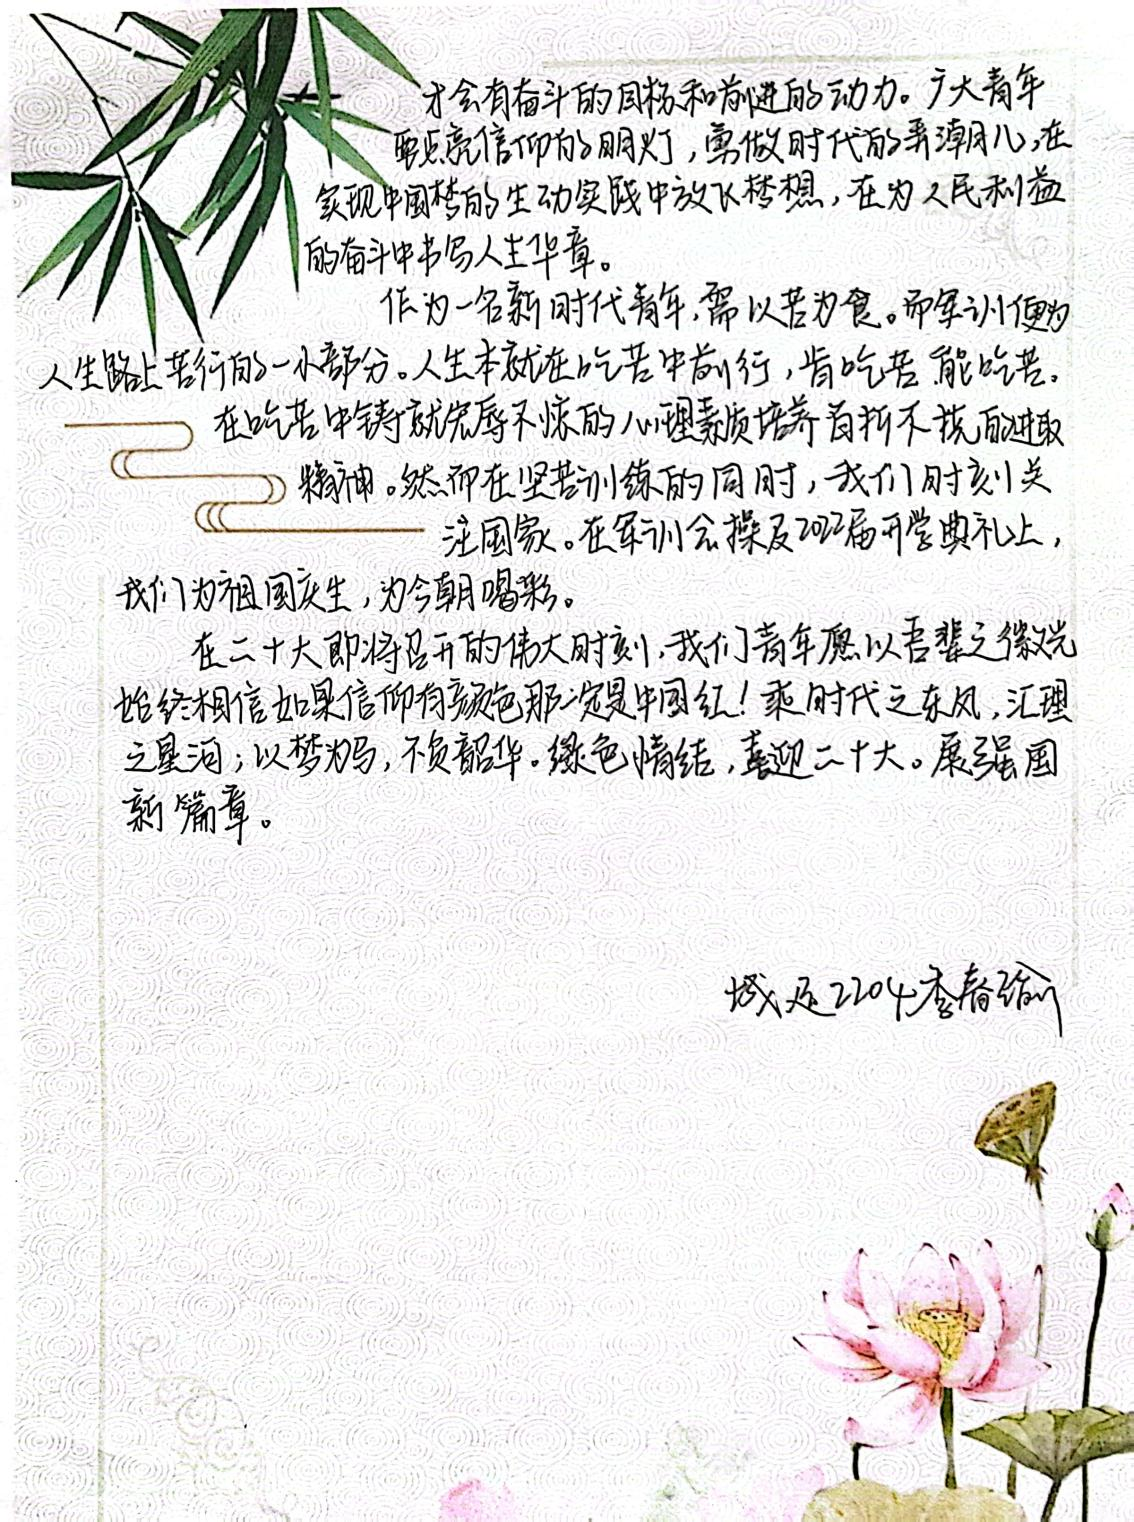 才会有奋斗的目标和前进的动力。广大青年
要点亮信仰的明灯，勇做时代的弄潮儿，在
实现中国梦的生动实践中放飞梦想，在为人民利益
的奋斗中书写人生华章。
作为一名新时代青年，需以苦为食。而军训便为
人生路上苦行的一小部分。人生本就在吃苦中前行，肯吃苦能吃苦。
在吃苦中铸就宠辱不惊的心理素质培养百折不挠的进取
精神。然而在坚苦训练的同时，我们时刻关
注国家。在军训会操及2022届开学典礼上，
我们为祖国庆生，为今朝喝彩。
在二十大即将召开的伟大时刻，我们青年愿以吾辈之微光
始终相信如果信仰有颜色那一定是中国红！乘时代之东风，汇理
之星河；以梦为马，不负韶华。绿色情结，喜迎二十大。展强国
新篇章。
城运2204季春瑜